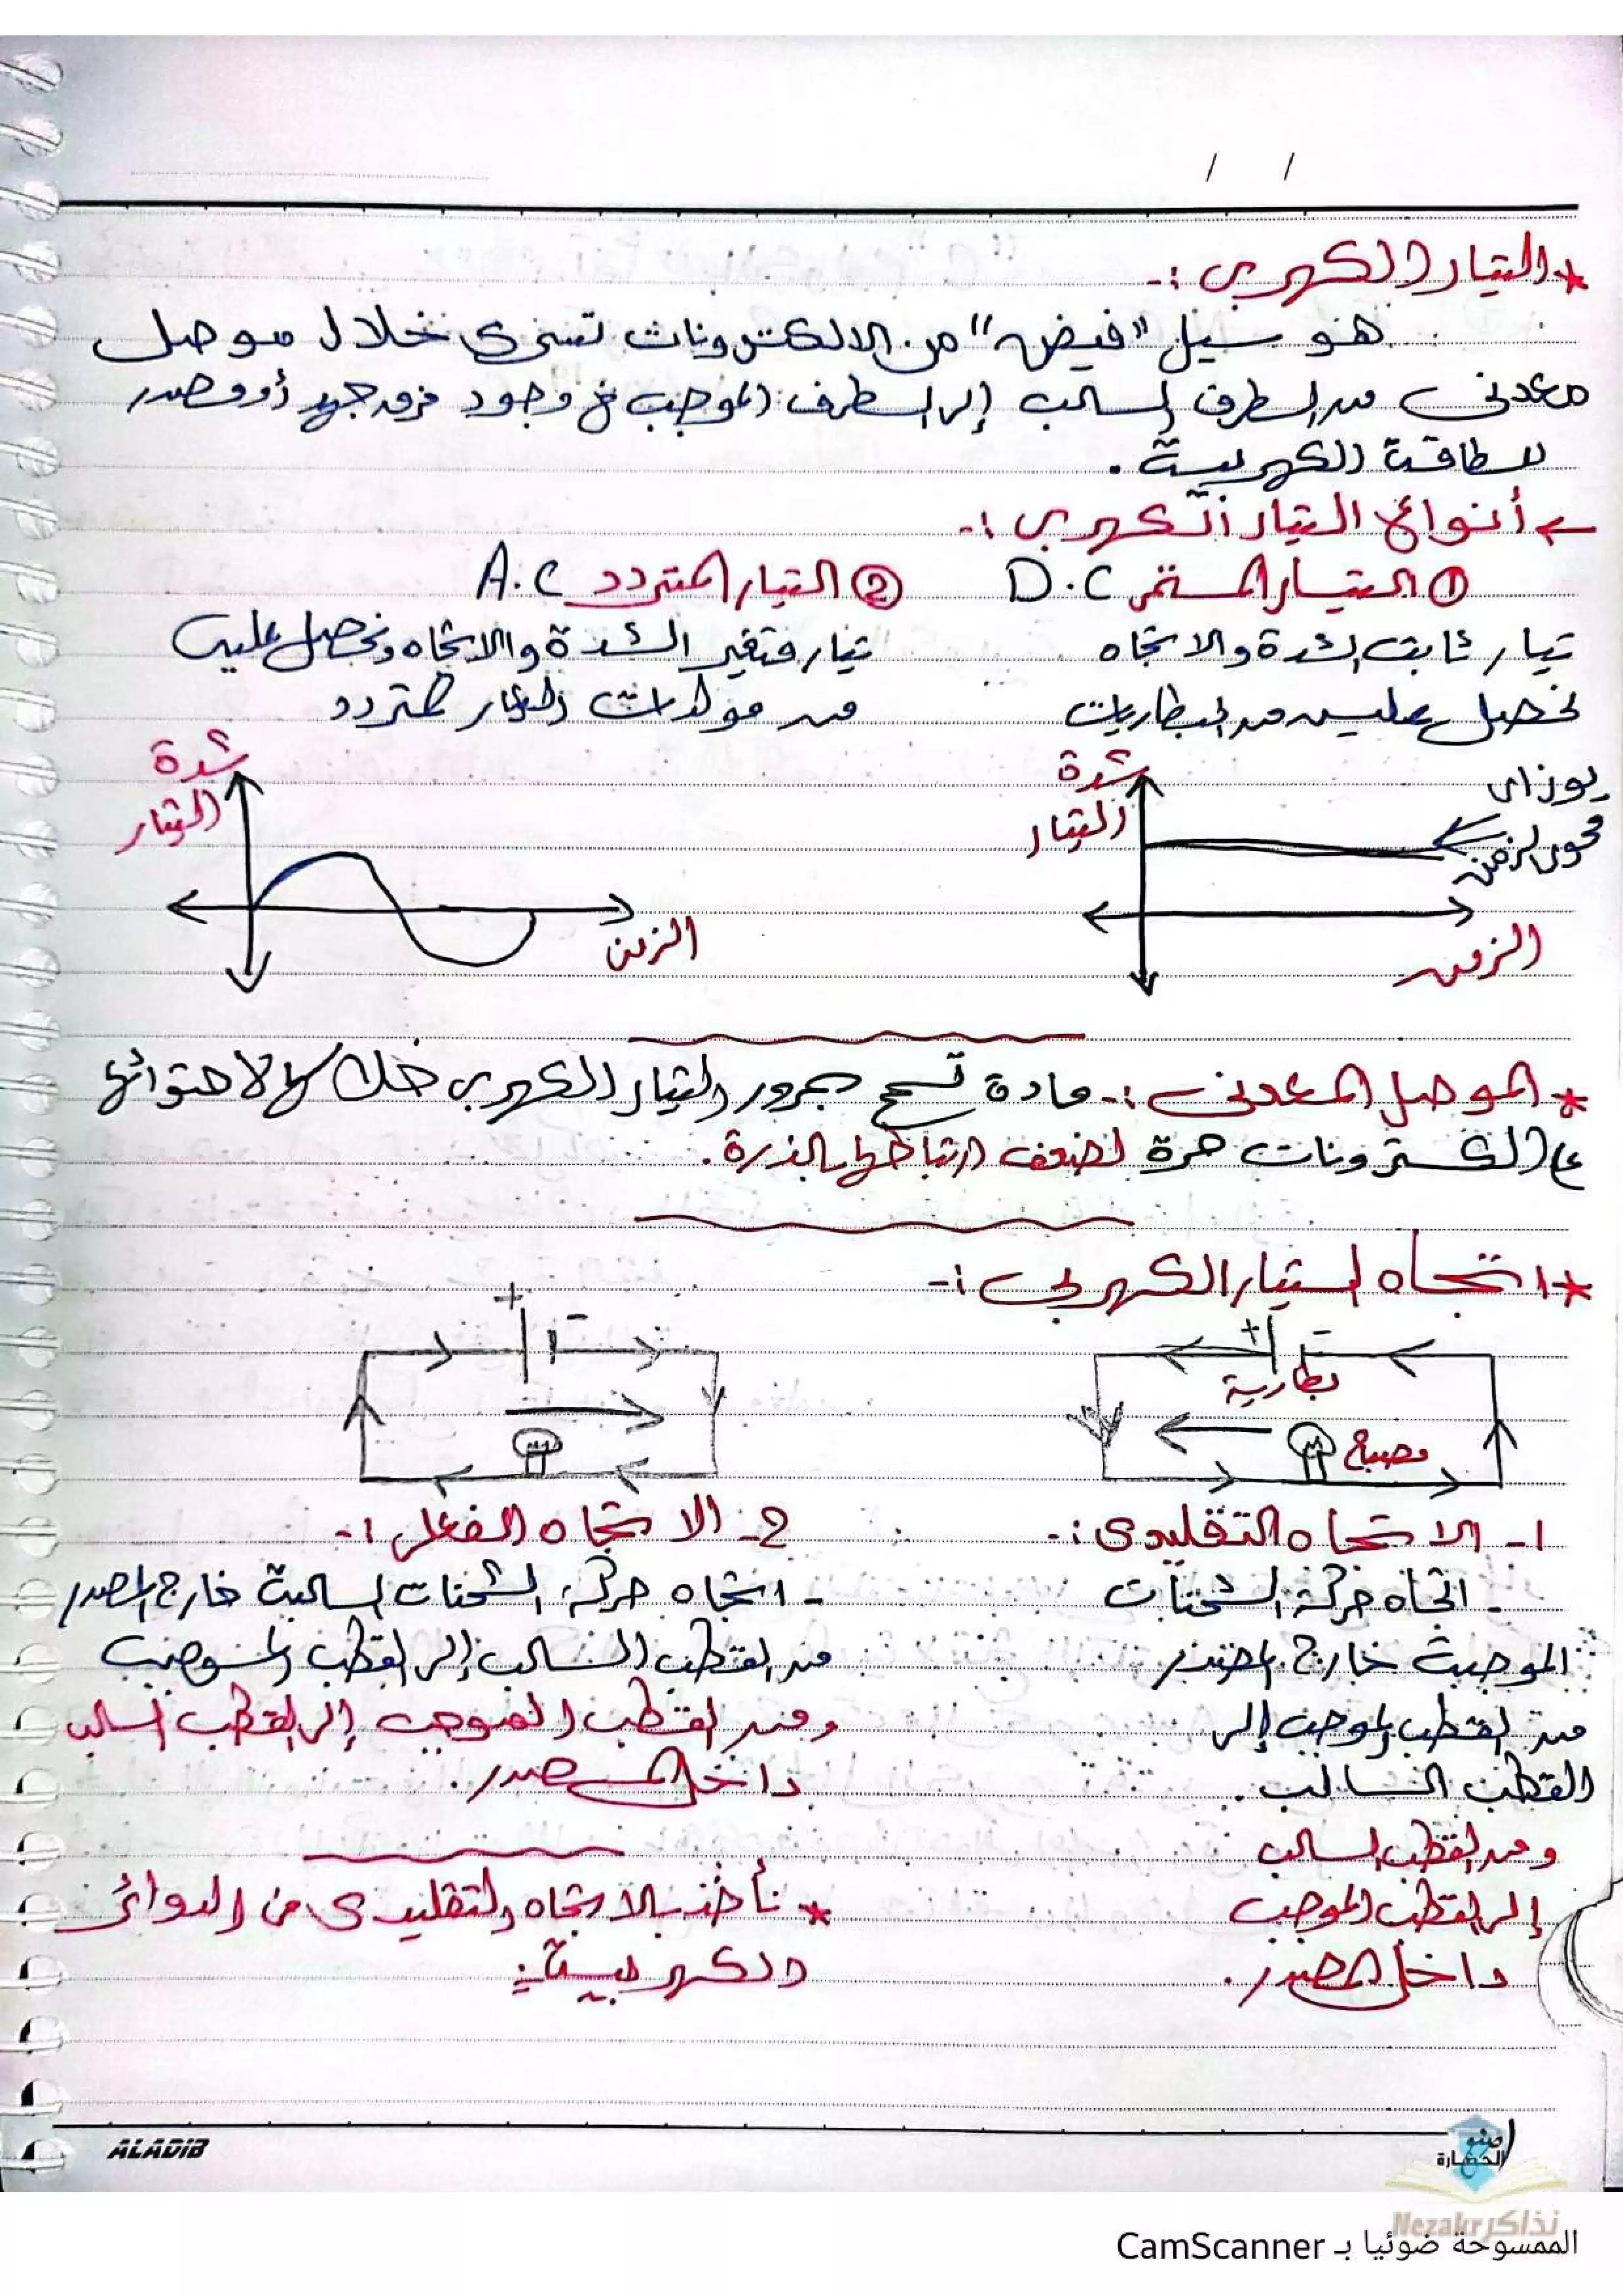 / /
* التيار الكهربى :-
هو سيل "فيض" من الالكترونات تسرى خلال موصل
معدنى من الطرف السالب إلى الطرف الموجب فى وجود فرق جهد أو مصدر
للطاقة الكهربية .
← أنواع التيار الكهربى :-
① التيار المستمر D.C
② التيار المتردد A.C
تيار ثابت الشدة والاتجاه
نحصل عليه من البطاريات
تيار متغير الشدة والاتجاه ونحصل عليه
من مولدات التيار المتردد
شدة
التيار
يوزاى
محور الزمن
الزمن
شدة
التيار
الزمن
* الموصل المعدنى :- مادة تسمح بمرور التيار الكهربى خلالها لاحتوائها
على الكترونات حرة لضعف ارتباطها بالذرة .
* اتجاه التيار الكهربى :-
+ -
بطارية
مصباح
+ -
1- الاتجاه التقليدى :-
- اتجاه حركة الشحنات
الموجبة خارج المصدر
من القطب الموجب إلى
القطب السالب .
ومن القطب السالب
إلى القطب الموجب
داخل المصدر .
2- الاتجاه الفعلى :-
- اتجاه حركة الشحنات السالبة خارج المصدر
من القطب السالب إلى القطب الموجب
ومن القطب الموجب إلى القطب السالب
داخل المصدر .
* نأخذ بالاتجاه التقليدى فى الدوائر
الكهربية
ALADIB
صنع
الحضارة
Nezakr نذاكر
الممسوحة ضوئيا بـ CamScanner